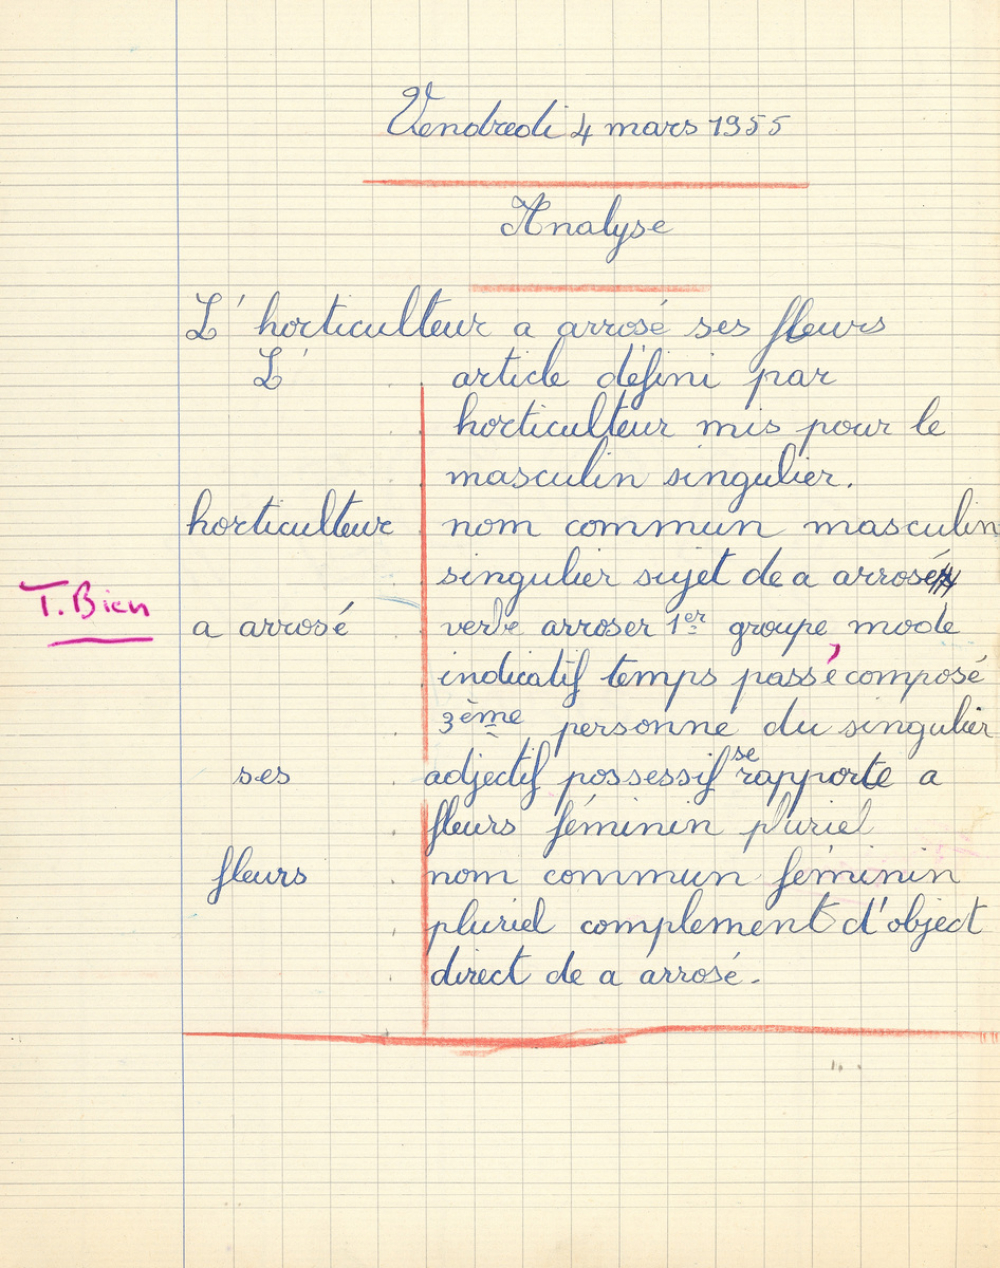 Vendredi 4 mars 1955
Analyse
L'horticulteur a arrosé ses fleurs
L' article défini par
horticulteur mis pour le
masculin singulier.
horticulteur nom commun masculin
singulier sujet de a arrosé
T. Bien
a arrosé verbe arroser 1er groupe, mode
indicatif temps passé composé
3ème personne du singulier
ses adjectif possessif se rapporte a
fleurs féminin pluriel
fleurs nom commun féminin
pluriel complement d'object
direct de a arrosé.